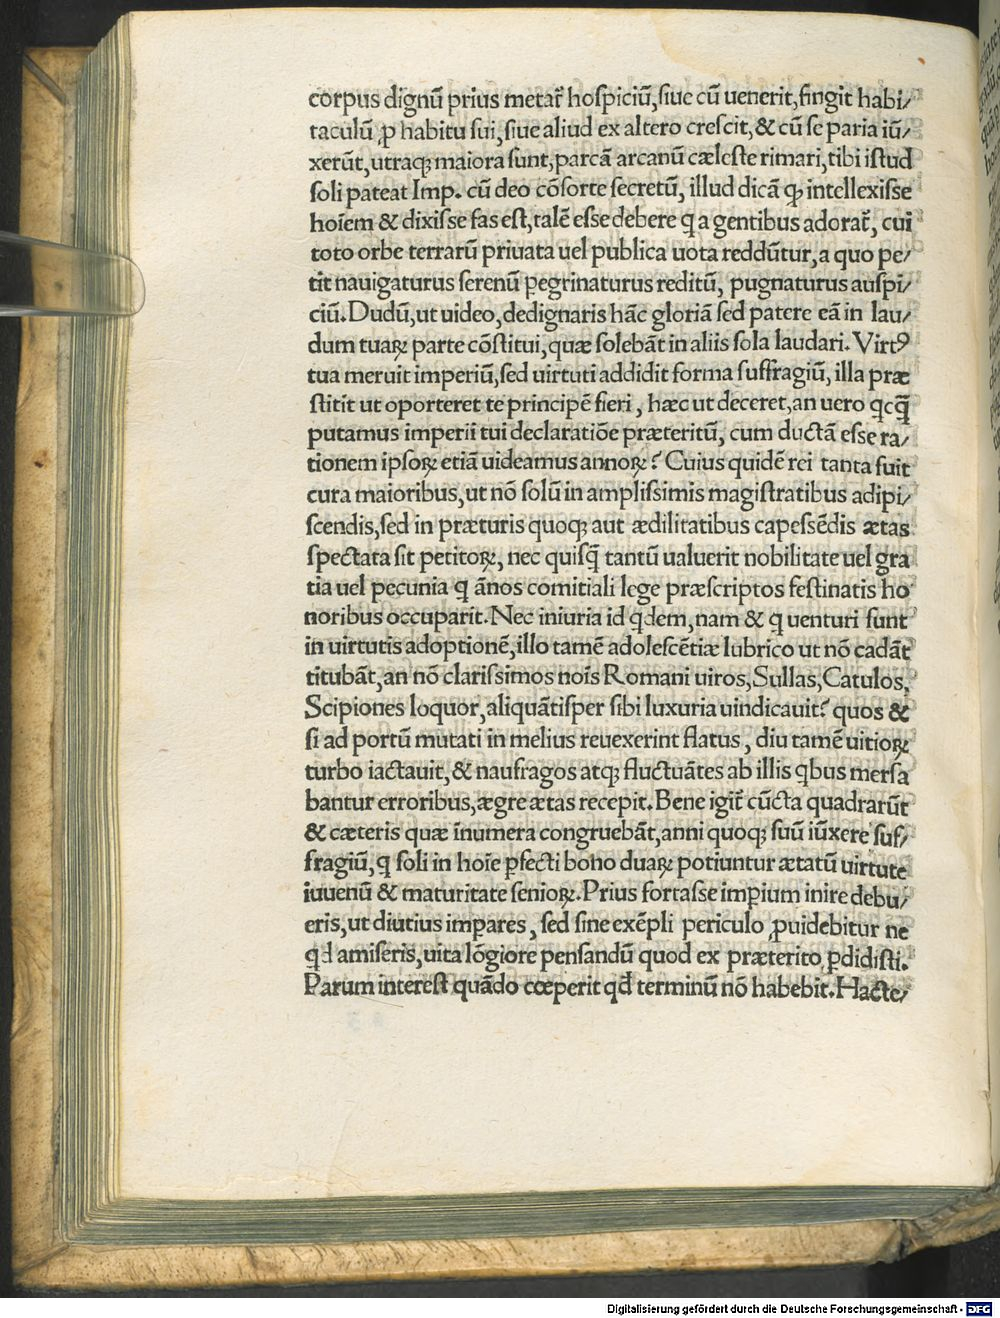 corpus dignū prius metat᷑ hoſpiciū,ſiue cū uenerit,fingit habi/
taculū ꝓ habitu ſui,ſiue aliud ex altero creſcit,& cū ſe paria iū/
xerūt,utraqꝫ maiora ſunt,parcā arcanū cæleſte rimari,tibi iſtud
ſoli pateat Imp. cū deo cōſorte ſecretū, illud dicā ꝙ intellexiſſe
hoīem & dixiſſe fas eſt,talē eſſe debere q̇ a gentibus adorat᷑, cui
toto orbe terrarū priuata uel publica uota reddūtur,a quo pe/
tit nauigaturus ſerenū ꝑegrinaturus reditū, pugnaturus auſpi/
ciū.Dudū,ut uideo,dedignaris hāc gloriā ſed patere eā in lau/
dum tuaꝝ parte cōſtitui,quæ ſolebāt in aliis ſola laudari. Virtꝰ
tua meruit imperiū,ſed uirtuti addidit forma ſuffragiū, illa præ
ſtitit ut oporteret te principē fieri, hæc ut deceret,an uero q̇cq̄
putamus imperii tui declaratiōe præteritū, cum ductā eſſe ra/
tionem ipſoꝝ etiā uideamus annoꝝ? Cuius quidē rei tanta fuit
cura maioribus,ut nō ſolū in ampliſſimis magiſtratibus adipi/
ſcendis,ſed in præturis quoqꝫ aut ædilitatibus capeſſēdis ætas
ſpectata ſit petitoꝝ, nec quiſq̄ tantū ualuerit nobilitate uel gra
tia uel pecunia q̇ ānos comitiali lege præſcriptos feſtinatis ho
noribus occuparit.Nec iniuria id q̇dem,nam & q̇ uenturi ſunt
in uirtutis adoptionē,illo tamē adoleſcētiæ lubrico ut nō cadāt
titubāt,an nō clariſſimos noīs Romani uiros,Sullas,Catulos,
Scipiones loquor,aliquātiſper ſibi luxuria uindicauit? quos &
ſi ad portū mutati in melius reuexerint flatus, diu tamē uitioꝝ
turbo iactauit,& naufragos atqꝫ fluctuātes ab illis q̇bus merſa
bantur erroribus,ægre ætas recepit.Bene igit᷑ cūcta quadrarūt
& cæteris quæ īnumera congruebāt,anni quoqꝫ ſuū iūxere ſuf/
fragiū,q̇ ſoli in hoīe ꝑfecti bono duaꝝ potiuntur ætatū uirtute
iuuenū & maturitate ſenioꝝ.Prius fortaſſe imꝑium inire debu/
eris,ut diutius imꝑares, ſed ſine exēpli periculo ꝓuidebitur ne
qd amiſeris,uita lōgiore penſandū quod ex præterito ꝑdidiſti.
Parum intereſt quādo cœperit qđ terminū nō habebit.Hacte/
Digitalisierung gefördert durch die Deutsche Forschungsgemeinschaft - DFG